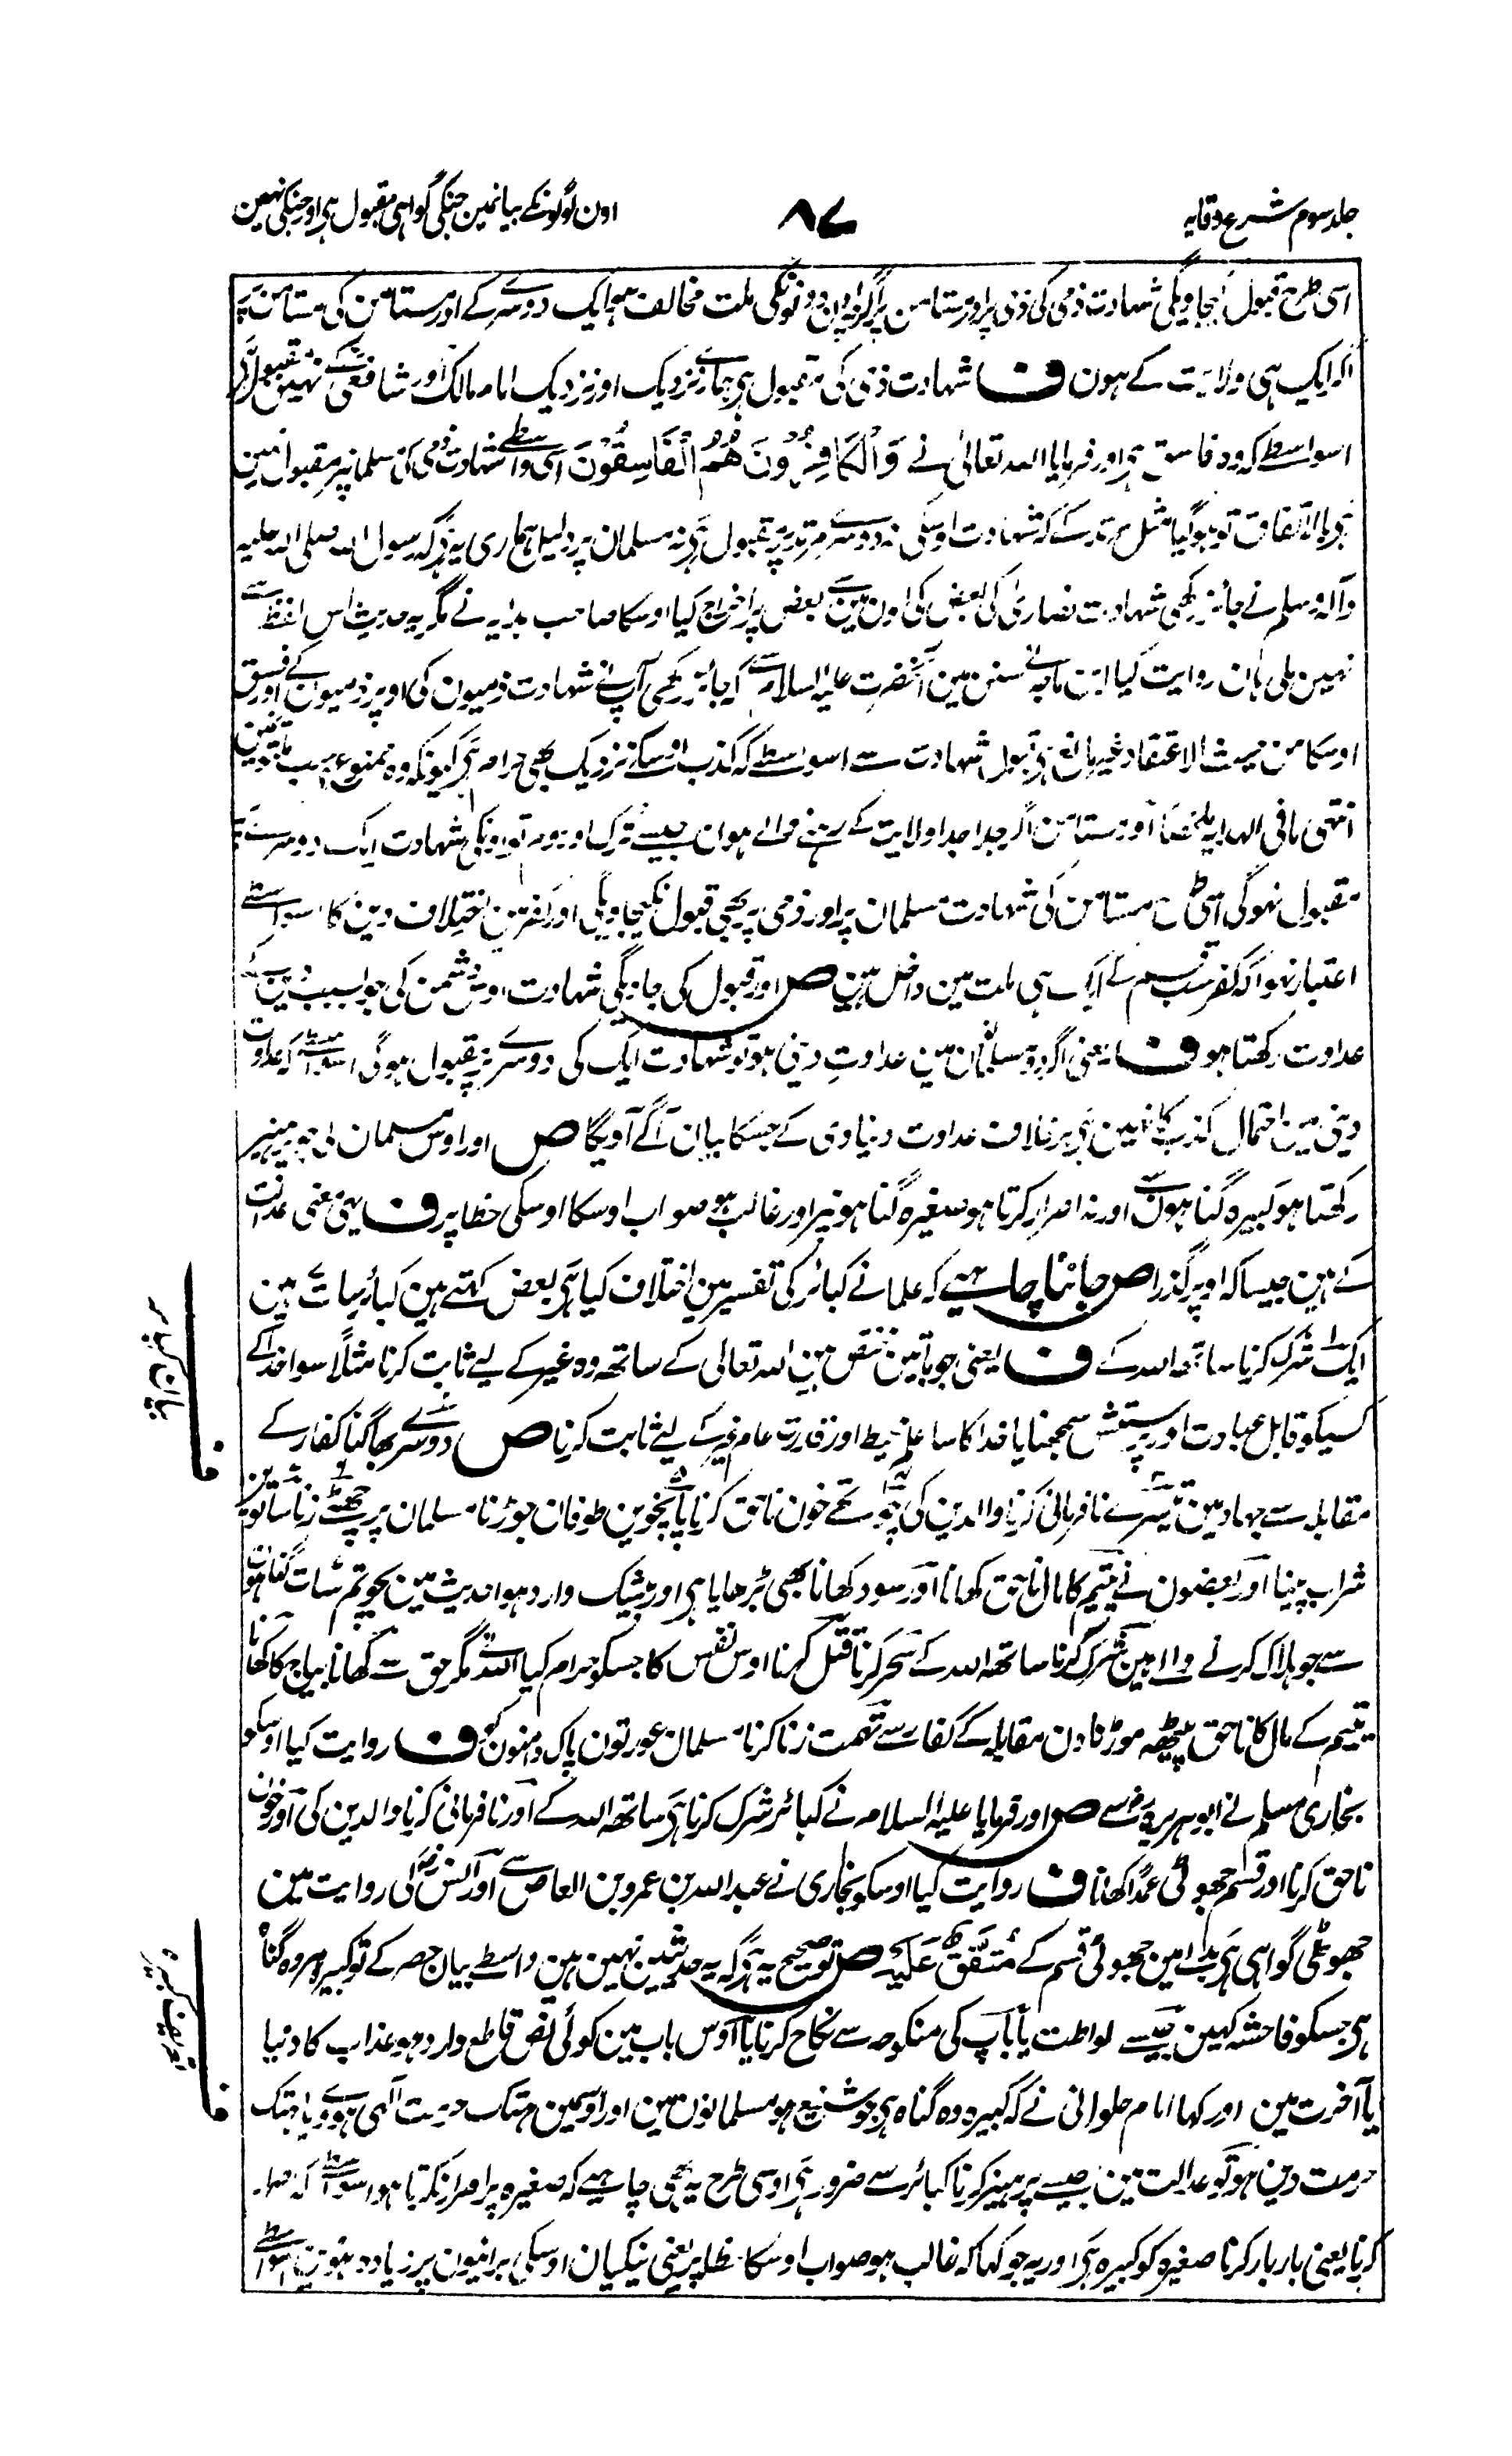 جلد سوم شرح وقایہ
۸۷
اون لوگونکے بیانمین جنکی گواہی مقبول ہی اور جنکی نہین
اسی طرح قبول کیجاویگی شہادت ذمی کی ذمی پر اور مستامن پر اگرچہ اون دونونکی ملت مخالف ہو ایک دوسرے کے اور مستامن کی مستامن پر
اگر ایک ہی ولایت کے ہون ف شہادت ذمی کی مقبول ہی ہمارے نزدیک اور نزدیک امام مالک اور شافعی کے نہین مقبول ہی
اسواسطے کہ وہ فاسق ہی اور فرمایا اللہ تعالیٰ نے وَالْكَافِرُوْنَ هُمُ الْفَاسِقُوْنَ اسی واسطے شہادت ذمی کی مسلمانپر مقبول نہین
ہی بالاتفاق تو ہوگیا مثل مرتد کے کہ شہادت اوسکی نہ دوسرے مرتد پر مقبول ہی نہ مسلمان پر دلیل ہماری یہ ہی کہ رسول اللہ صلی اللہ علیہ
وآلہ وسلم نے جائز رکھی شہادت نصاریٰ کی بعض کی اون مین سے بعض پر اخراج کیا اوسکا صاحب ہدایہ نے مگر یہ حدیث اس لفظ سے
نہین ملی ہان روایت کیا ابن ماجہ نے سنن مین آنحضرت علیہ السلام سے کہ جائز رکھی آپنے شہادت ذمیون کی اوپر ذمیون کے اور فسق
اوسکا من حیث الاعتقاد غیر مانع ہی قبول شہادت سے اسواسطے کہ کذب اوسکے نزدیک بھی حرام ہی کیونکہ وہ ممنوع ہی سب دینون مین
انتہی ما فی الہدایہ ملخصاً اور مستامن اگر جدا جدا ولایت کے رہنے والے ہون جیسے ترک اور روم تو اونکی شہادت ایک دوسرے پر
مقبول نہوگی اسی طرح مستامن کی شہادت مسلمان پر اور ذمی پر بھی قبول نکیجاویگی اور کفر مین اختلاف دین کا اسواسطے
اعتبار نہوا کہ کفر سب قسم کے ایک ہی ملت مین داخل ہین ص اور قبول کی جاویگی شہادت اوس دشمن کی جو بسبب دین کے
عداوت رکھتا ہو ف یعنی اگر دو مسلمانون مین عداوتِ دینی ہو تو شہادت ایک کی دوسرے پر مقبول ہوگی اسواسطے کہ عداوت
دینی مین احتمال کذب کا نہین ہی برخلاف عداوت دنیاوی کے جسکا بیان آگے آویگا ص اور اوس مسلمان کی جو پرہیز
رکھتا ہو کبیرہ گناہون سے اور نہ اصرار کرتا ہو صغیرہ گناہونپر اور غالب ہو صواب اوسکا اوسکی خطا پر ف یہی معنی عدالت
کے ہین جیسا کہ اوپر گذرا ص جاننا چاہیے کہ علما نے کبائر کی تفسیر مین اختلاف کیا ہی بعض کہتے ہین کبائر سات ہین
ایک شرک کرنا ساتھ اللہ کے ف یعنی جو باتین مختص ہین اللہ تعالی کے ساتھ وہ غیر کے لیے ثابت کرنا مثلاً سوا خدا کے
کسیکو قابل عبادت اور پرستش سمجھنا یا خدا کا سا علم محیط اور قدرت عام غیر کے لیے ثابت کرنا ص دوسرے بھاگنا کفار کے
مقابلہ سے جہاد مین تیسرے نافرمانی کرنا والدین کی چوتھے خون ناحق کرنا پانچوین طوفان جوڑنا مسلمان پر چھٹے زنا ساتوین
شراب پینا اور بعضون نے یتیم کا مال ناحق کھانا اور سود کھانا بھی بڑھایا ہی اور بیشک وارد ہوا حدیث مین بچو تم سات گناہون
سے جو ہلاک کرنے والے ہین شرک کرنا ساتھ اللہ کے سحر کرنا قتل کرنا اوس نفس کا جسکو حرام کیا اللہ نے مگر حق سے کھانا بیاج کا کھانا
یتیم کے مال کا ناحق پیٹھ موڑنا دن مقابلہ کے کفار سے تہمت زنا کرنا مسلمان عورتون پاک دامنون کو ف روایت کیا اوسکو
بخاری مسلم نے ابوہریرہ سے ص اور فرمایا علیہ السلام نے کبائر شرک کرنا ہی ساتھ اللہ کے اور نافرمانی کرنا والدین کی اور خون
ناحق کرنا اور قسم جھوٹی عمداً کھانا ف روایت کیا اوسکو بخاری نے عبد اللہ بن عمرو بن العاص سے اور انس کی روایت مین
جھوٹی گواہی ہی بدلے مین جھوٹی قسم کے مُتَّفَقٌ عَلَيْهِ ص تو صحیح یہ ہی کہ یہ حدیثین نہین ہین واسطے بیان حصر کے تو کبیرہ ہر وہ گناہ
ہی جسکو فاحشہ کہین جیسے لواطت یا باپ کی منکوحہ سے نکاح کرنا یا اوس باب مین کوئی نص قاطع وارد ہو عذاب کا دنیا
یا آخرت مین اور کہا امام حلوانی نے کہ کبیرہ وہ گناہ ہی جو شنیع ہو مسلمانون مین اور اوسمین ہتک حرمت الٰہی ہووے یا ہتک
حرمت دین ہو تو عدالت مین جیسے پرہیز کرنا کبائر سے ضرور ہی اوسی طرح یہ بھی چاہیے کہ صغیرہ پر اصرار نکرتا ہو اسواسطے کہ اصرار
کرنا یعنی بار بار کرنا صغیرہ کو کبیرہ ہی اور یہ جو کہا کہ غالب ہو صواب اوسکا خطا پر یعنی نیکیان اوسکی برائیون پر زیادہ ہون اسواسطے
ف بیان کبائر
ف تعریف کبیرہ